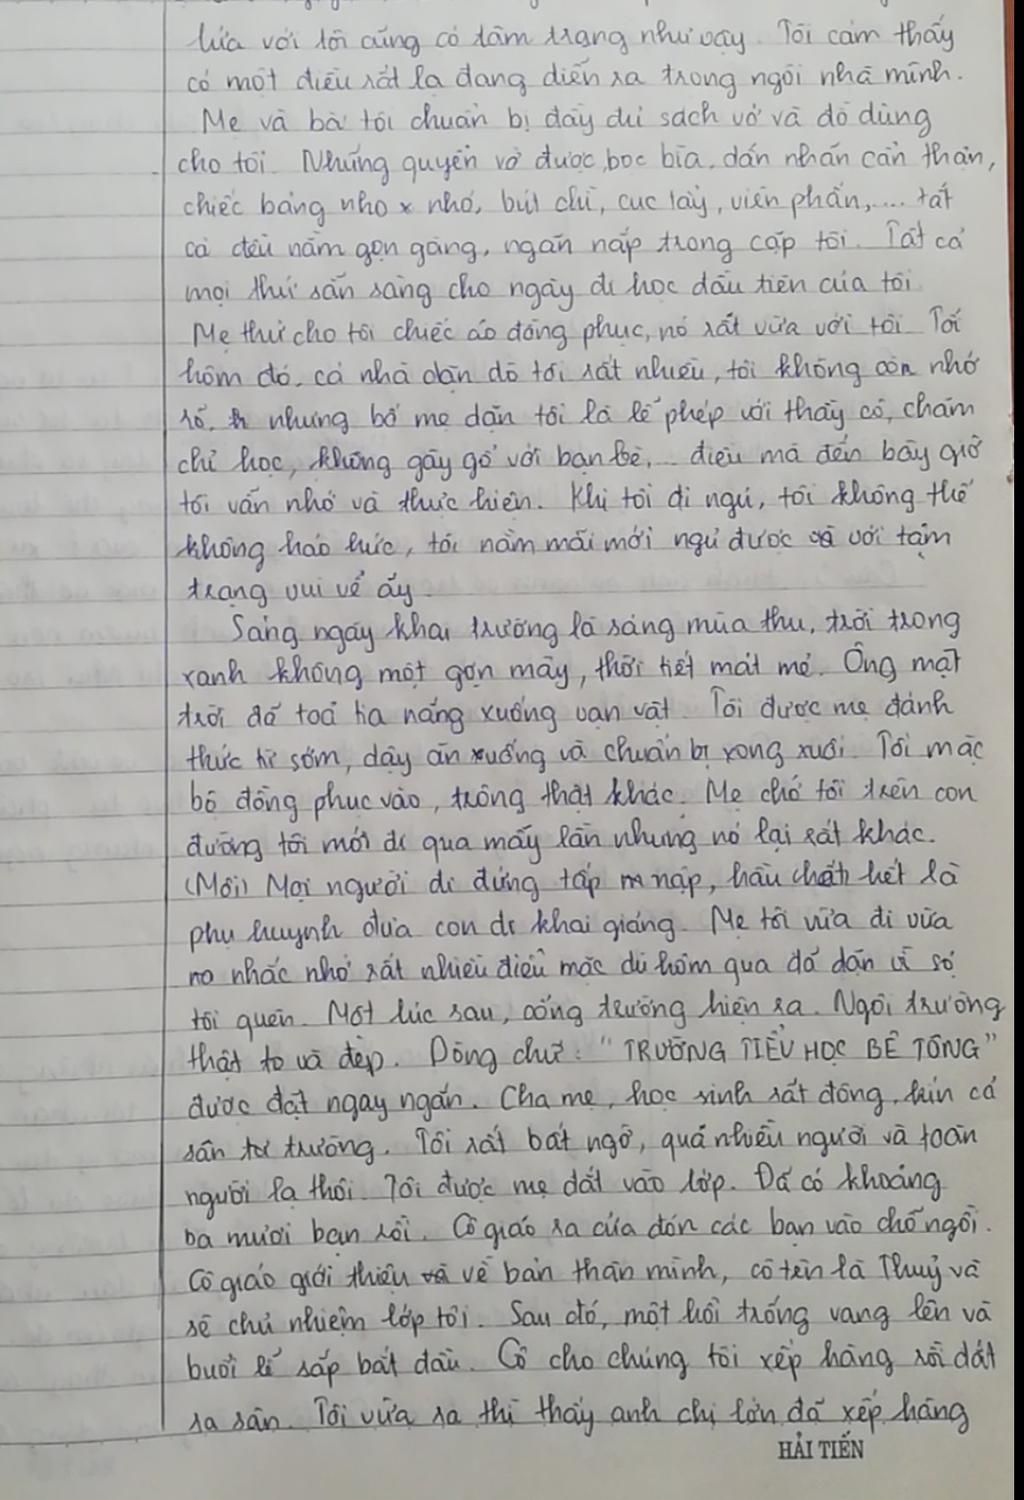 lứa với tôi cũng có tâm trạng như vậy. Tôi cảm thấy
có một điều rất lạ đang diễn ra trong ngôi nhà mình.
Mẹ và bà tôi chuẩn bị đầy đủ sách vở và đồ dùng
cho tôi. Những quyển vở được bọc bìa, dán nhãn cẩn thận,
chiếc bảng nho nhỏ, bút chì, cục tẩy, viên phấn,.... tất
cả đều nằm gọn gàng, ngăn nắp trong cặp tôi. Tất cả
mọi thứ sẵn sàng cho ngày đi học đầu tiên của tôi.
Mẹ thử cho tôi chiếc áo đồng phục, nó rất vừa với tôi. Tối
hôm đó, cả nhà dặn dò tôi rất nhiều, tôi không còn nhớ
rõ, nhưng bố mẹ dặn tôi là lễ phép với thầy cô, chăm
chỉ học, không gây gổ với bạn bè,... điều mà đến bây giờ
tôi vẫn nhớ và thực hiện. Khi tôi đi ngủ, tôi không thể
không háo hức, tôi nằm mãi mới ngủ được với tâm
trạng vui vẻ ấy.
Sáng ngày khai trường là sáng mùa thu, trời trong
xanh không một gợn mây, thời tiết mát mẻ. Ông mặt
trời đã toả tia nắng xuống vạn vật. Tôi được mẹ đánh
thức từ sớm, dậy ăn xuống và chuẩn bị xong xuôi. Tôi mặc
bộ đồng phục vào, trông thật khác. Mẹ chở tôi trên con
đường tôi mới đi qua mấy lần nhưng nó lại rất khác.
(Mọi) Mọi người đi đứng tấp nập, hầu hết là
phụ huynh đưa con đi khai giảng. Mẹ tôi vừa đi vừa
nhắc nhở rất nhiều điều mặc dù hôm qua đã dặn vì sợ
tôi quên. Một lúc sau, cổng trường hiện ra. Ngôi trường
thật to và đẹp. Dòng chữ: "TRƯỜNG TIỂU HỌC BÊ TÔNG"
được đặt ngay ngắn. Cha mẹ, học sinh rất đông, kín cả
sân trường. Tôi rất bất ngờ, quá nhiều người và toàn
người lạ thôi. Tôi được mẹ dắt vào lớp. Đã có khoảng
ba mươi bạn rồi. Cô giáo ra cửa đón các bạn vào chỗ ngồi.
Cô giáo giới thiệu về bản thân mình, cô tên là Thuỷ và
sẽ chủ nhiệm lớp tôi. Sau đó, một hồi trống vang lên và
buổi lễ sắp bắt đầu. Cô cho chúng tôi xếp hàng rồi dắt
ra sân. Tôi vừa ra thì thấy anh chị lớn đã xếp hàng
HẢI TIẾN